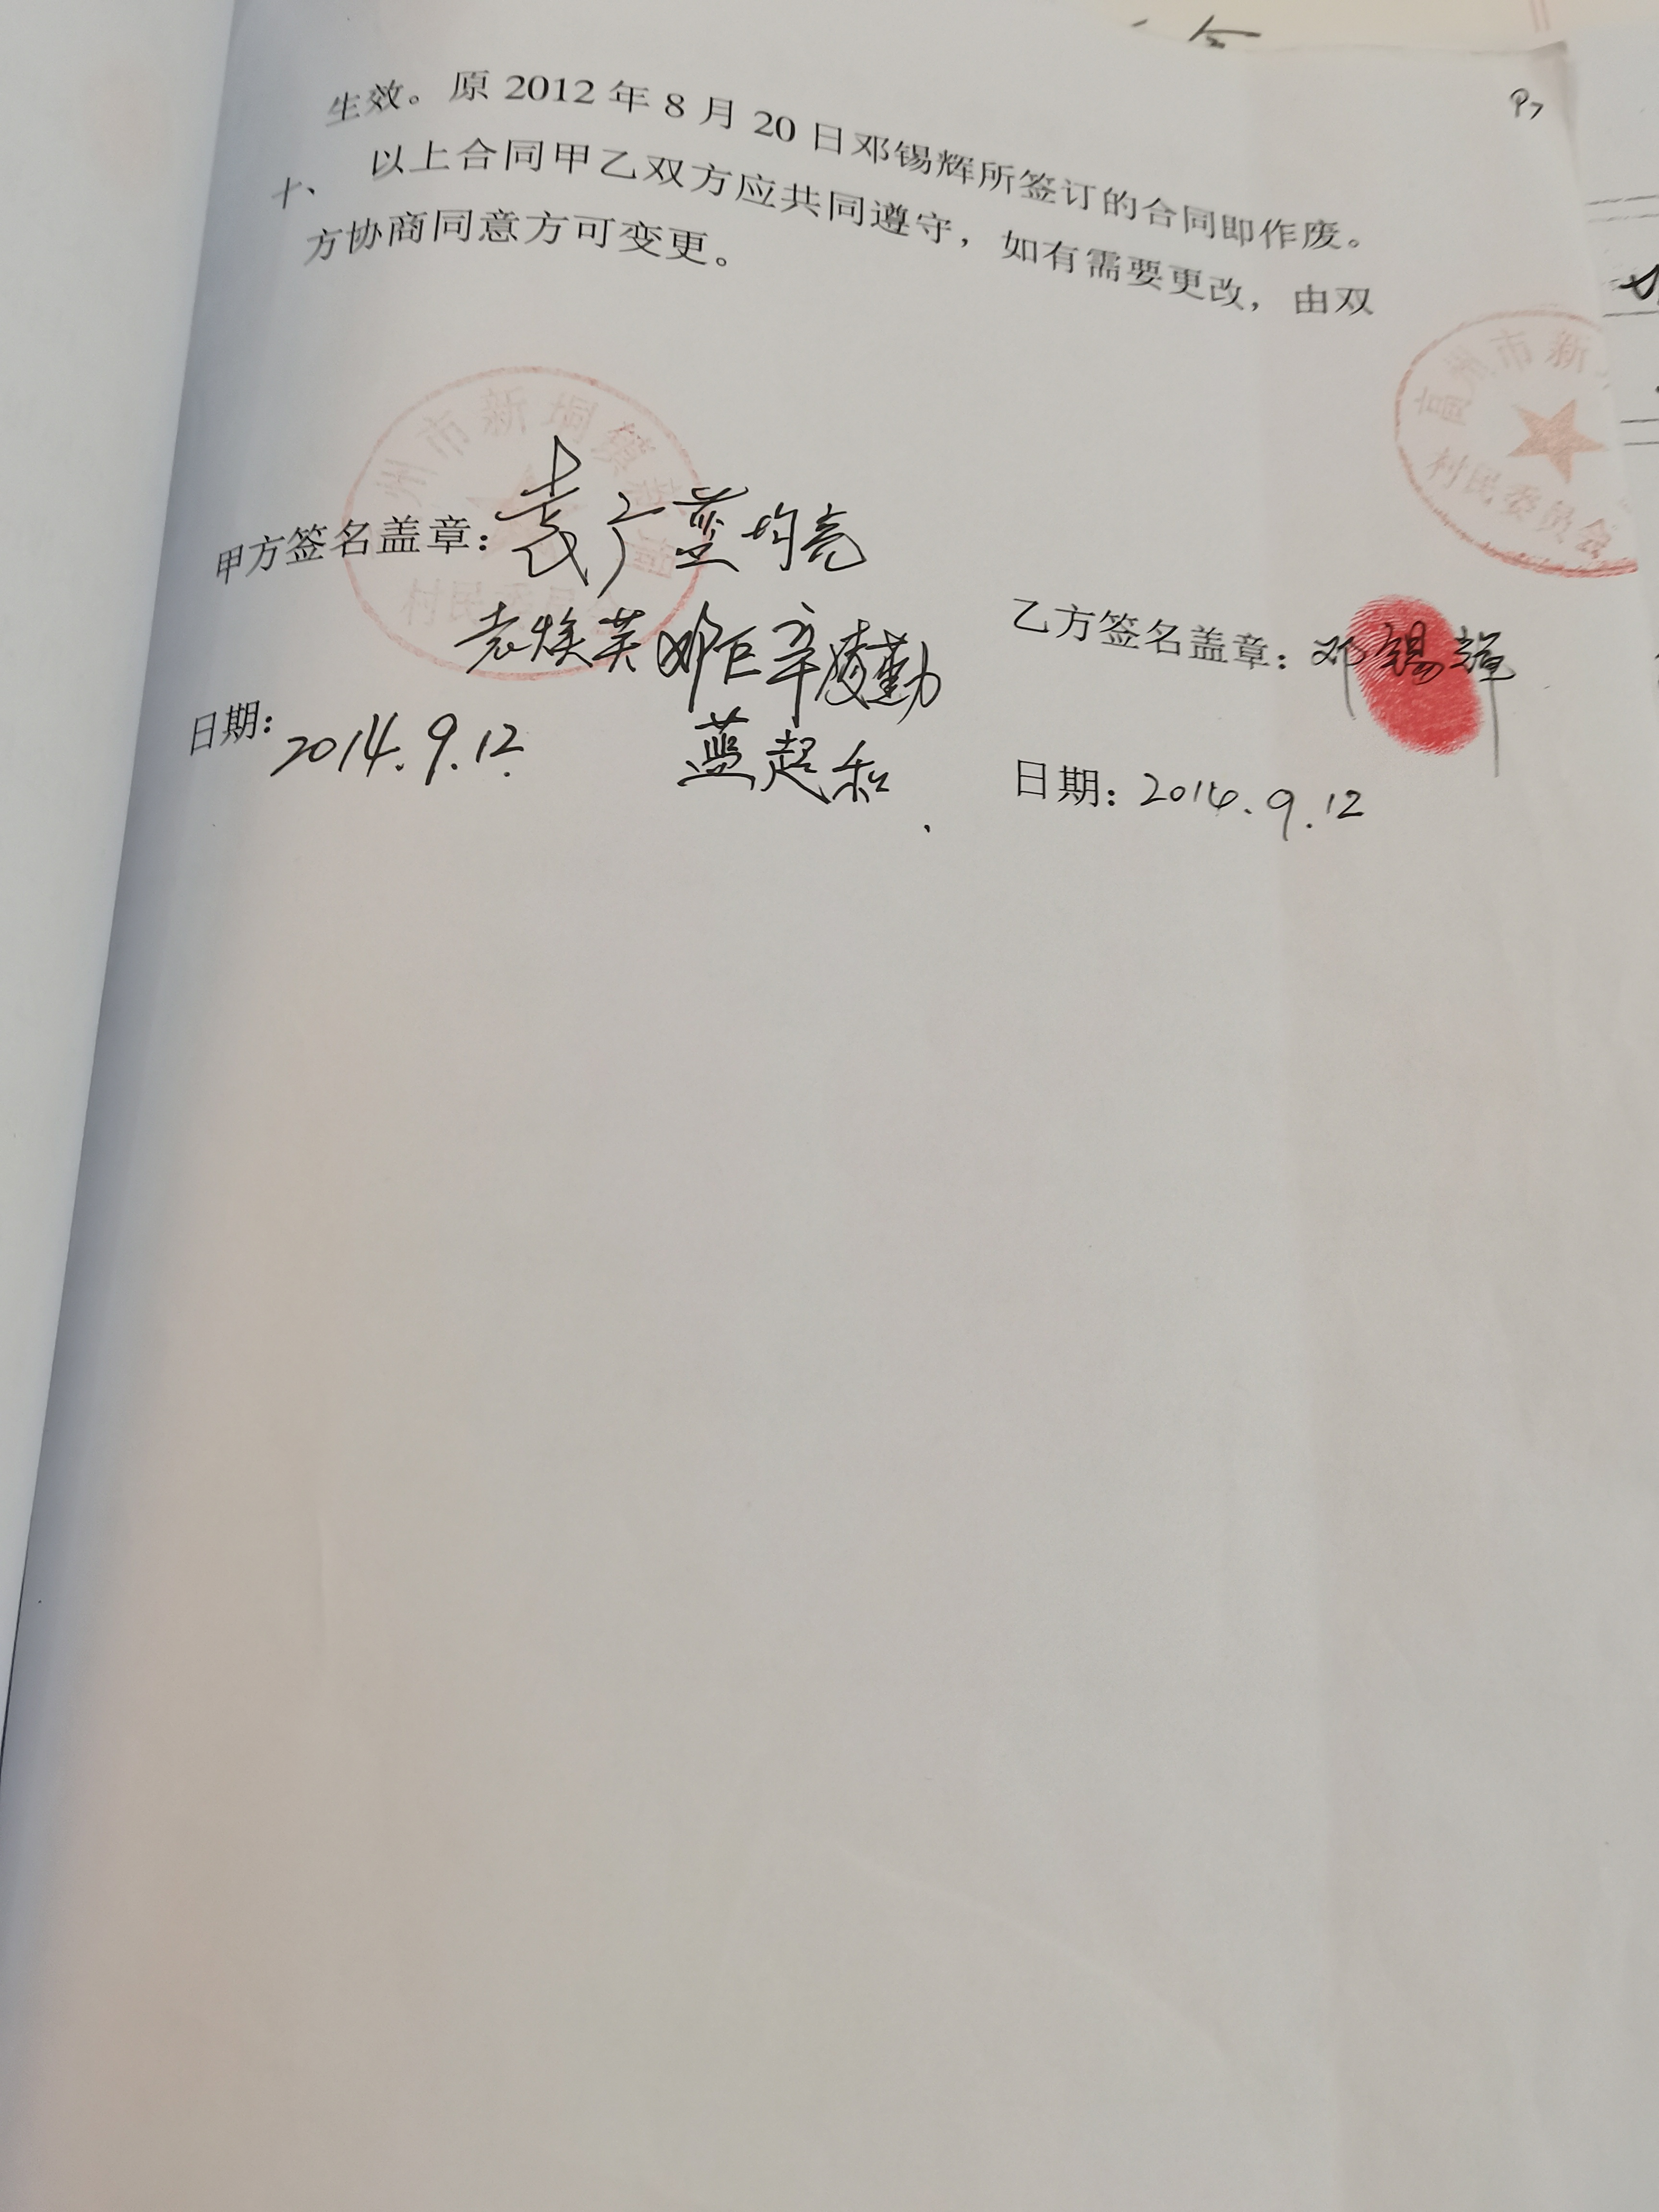 P7
生效。原 2012 年 8 月 20 日邓锡辉所签订的合同即作废。
十、 以上合同甲乙双方应共同遵守，如有需要更改，由双
方协商同意方可变更。
高州市新
村民委员会
州市新垌镇
村民委员会
甲方签名盖章：袁广 蓝均亮
凌勤
蓝起和
乙方签名盖章：邓锡辉
日期：2014.9.12
日期：2014.9.12